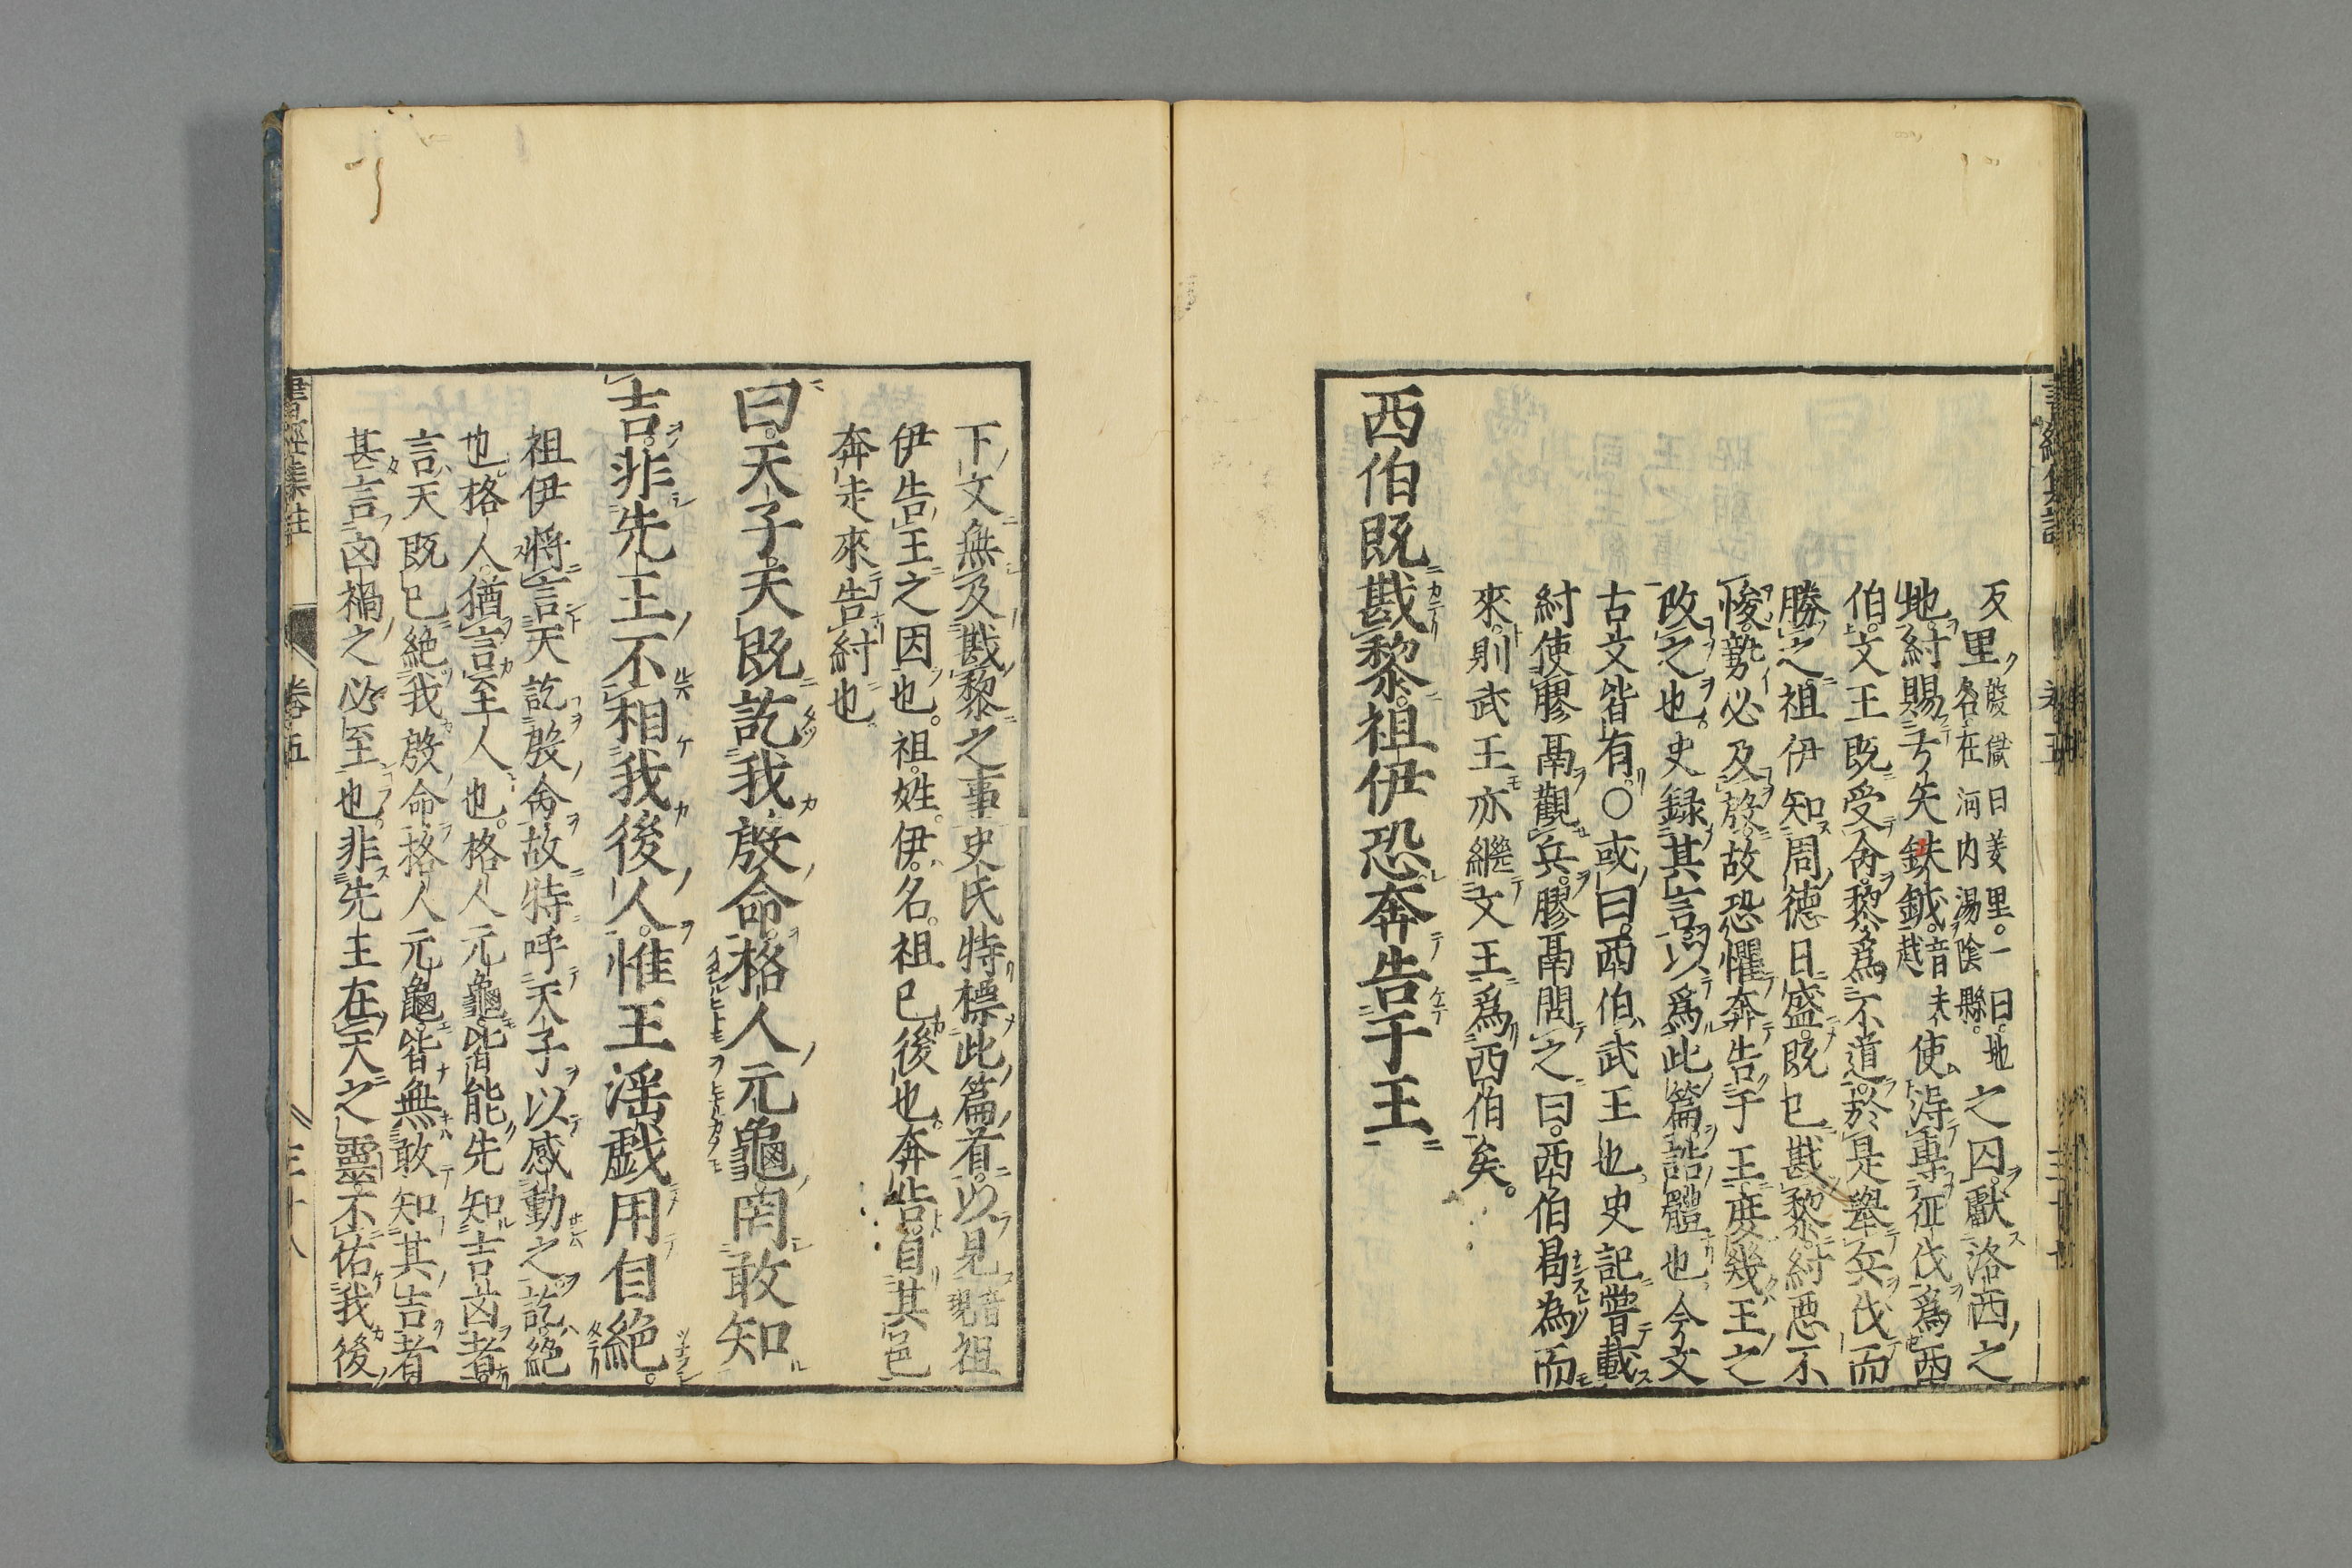 里殷獄曰羑里。一曰。地名。在河内湯陰縣。之囚。獻洛西之
地。紂賜弓矢鈇鉞。音越使得專征伐爲西
伯。文王既受命。黎爲不道。於是舉兵伐而
勝之。祖伊知周德日盛。既已戡黎。紂惡不
悛。勢必及殷。故恐懼奔告于王。庶幾王之
改之也。史録其言以爲此篇。誥體也。今文
古文皆有。○或曰。西伯武王也。史記嘗載
紂使膠鬲觀兵。膠鬲問之曰。西伯曷為而
來。則武王亦繼文王爲西伯矣。
西伯既戡黎。祖伊恐奔告于王
下文無及戡黎之事。史氏特標此篇首。以見音現祖
伊告王之因也。祖。姓。伊。名。祖已後也。奔告。自其邑
奔走來告紂也。
曰。天子。天既訖我殷命。格人元龜。罔敢知
吉。非先王不相我後人。惟王淫戯用自絶。
祖伊將言天訖殷命。故特呼天子以感動之。訖。絶
也。格人。猶言至人也。格人元龜。皆能先知吉凶者
言。天既已絶我殷命。格人元龜。皆無敢知其吉者
甚言凶禍之必至也。非先王在天之靈。不佑我後
書經集註
卷五
三十八